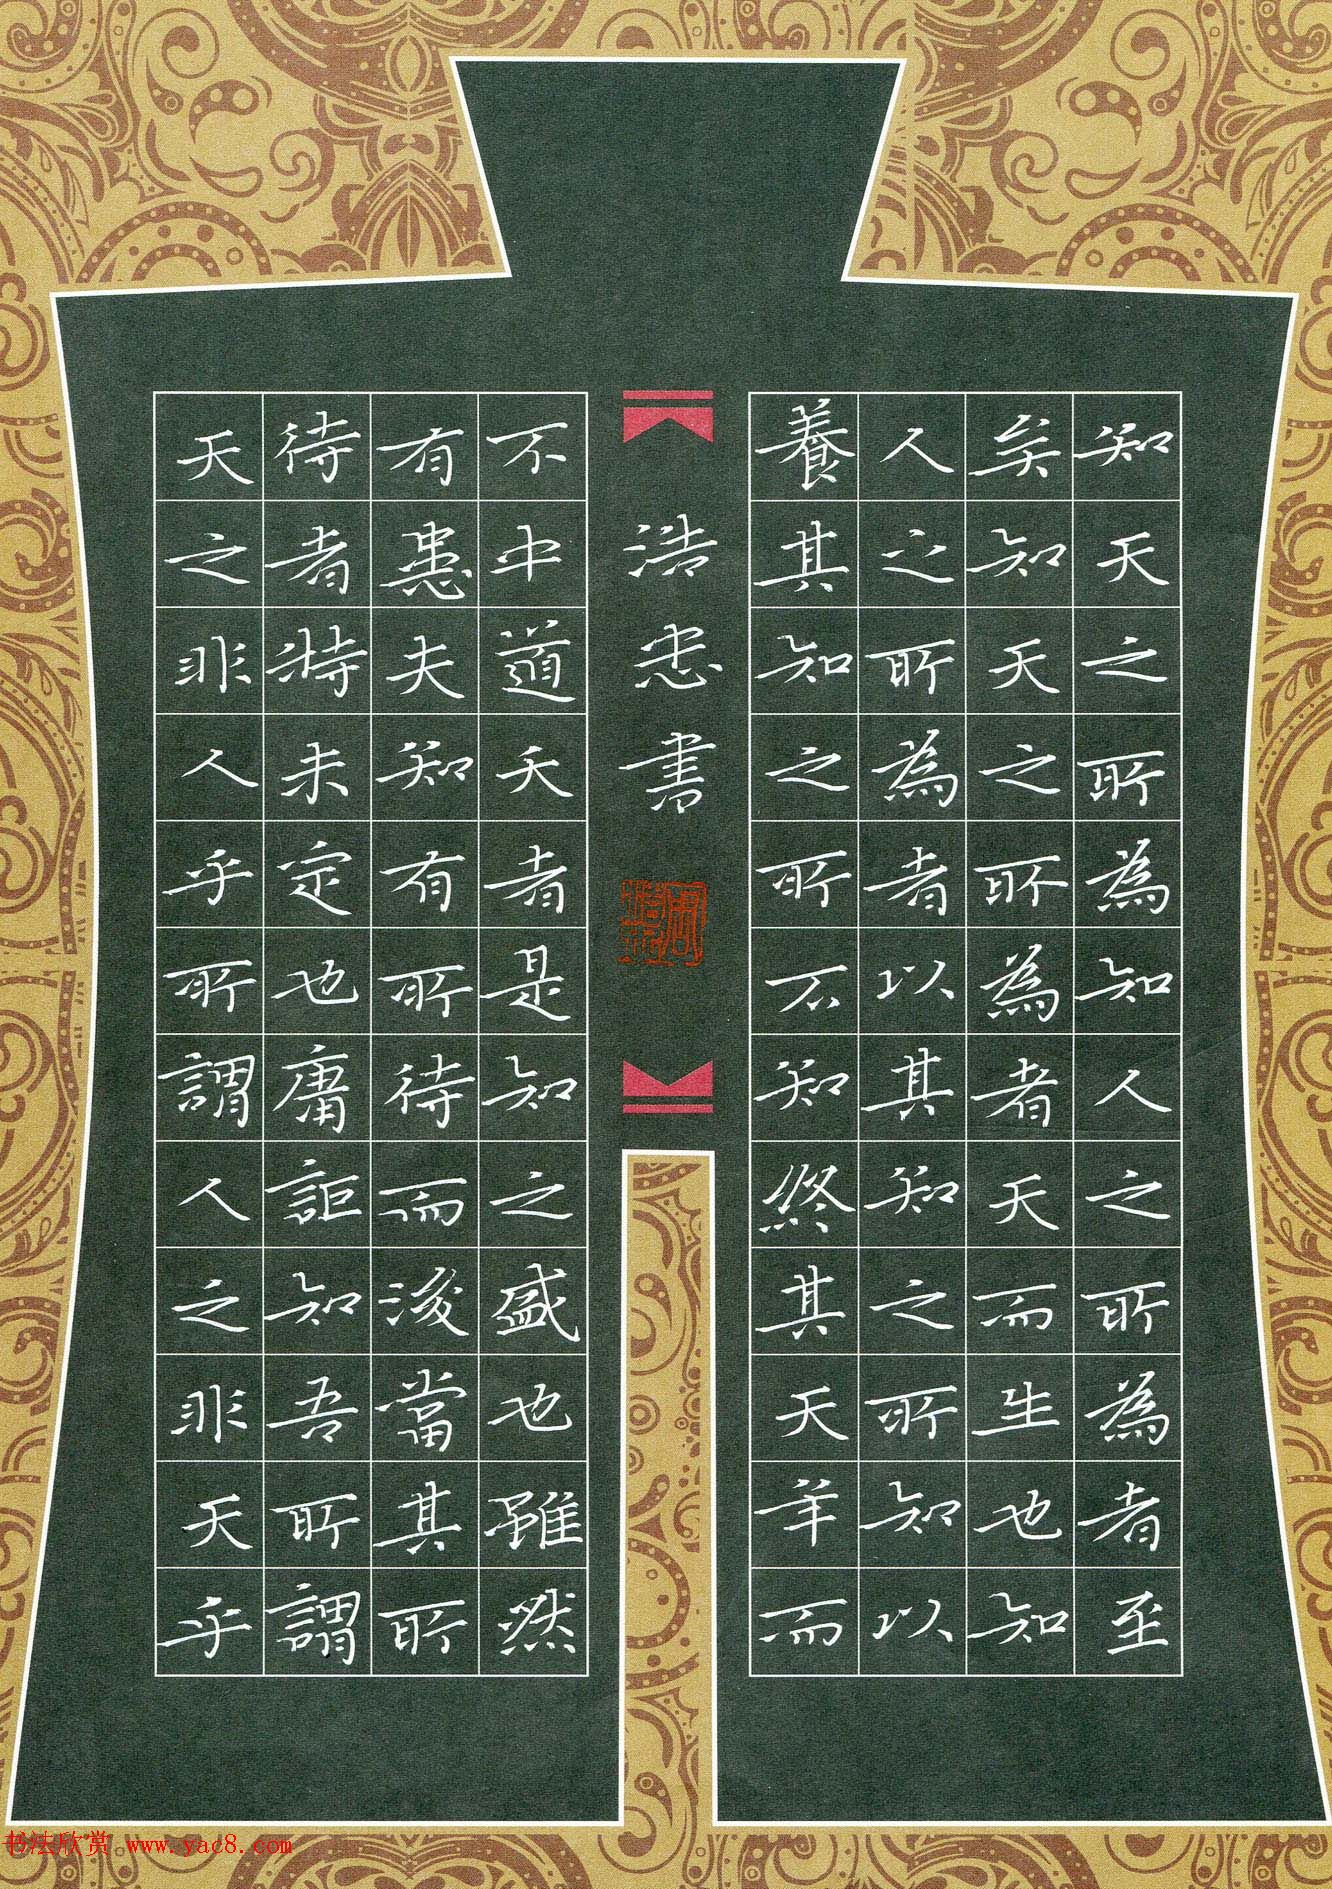 知天之所為知人之所為者至
矣知天之所為者天而生也知
人之所為者以其知之所知以
養其知之所不知終其天年而
不中道夭者是知之盛也雖然
有患夫知有所待而後當其所
待者特未定也庸詎知吾所謂
天之非人乎所謂人之非天乎
浩忠書
书法欣赏 www.yac8.com